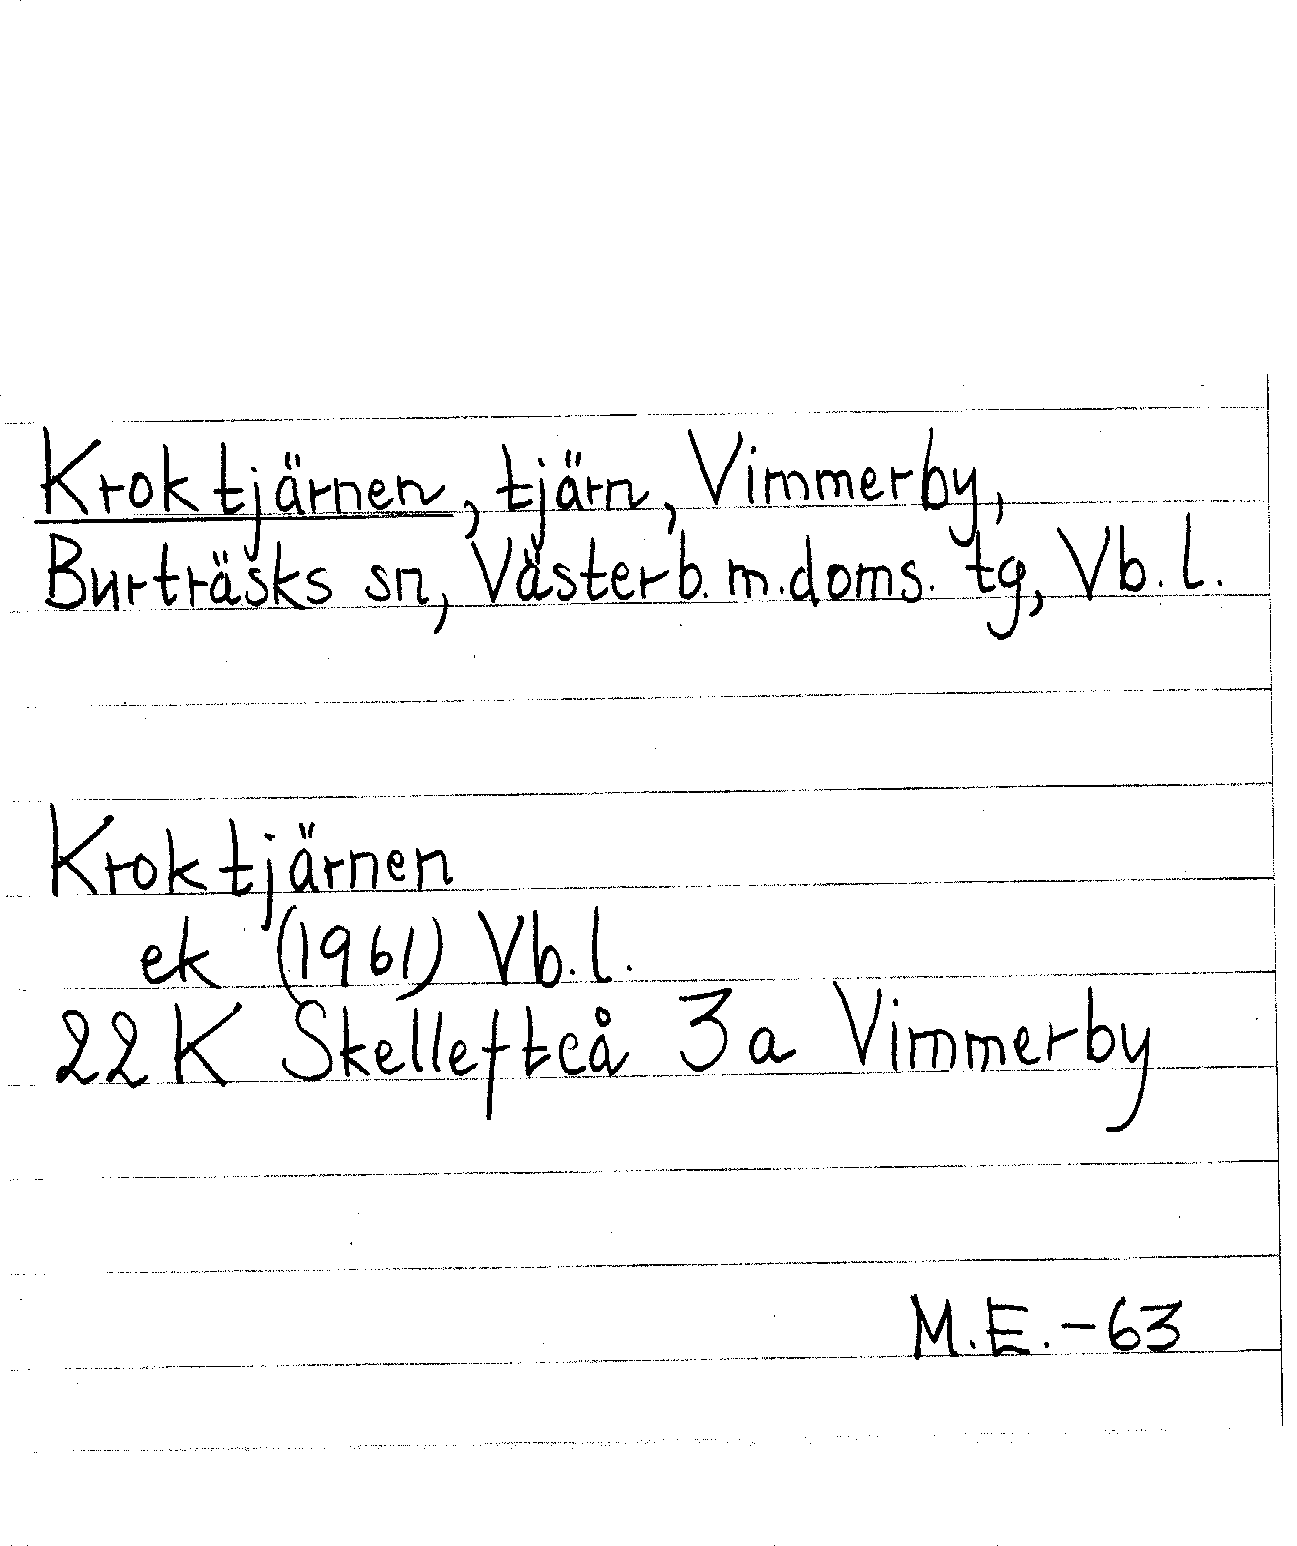 Kroktjärnen, tjärn, Vimmerby,
Burträsks sn, Västerb. m.doms. tg, Vb. l.
Kroktjärnen
ek (1961) Vb. l.
22 K Skellefteå 3a Vimmerby
M.E. -63